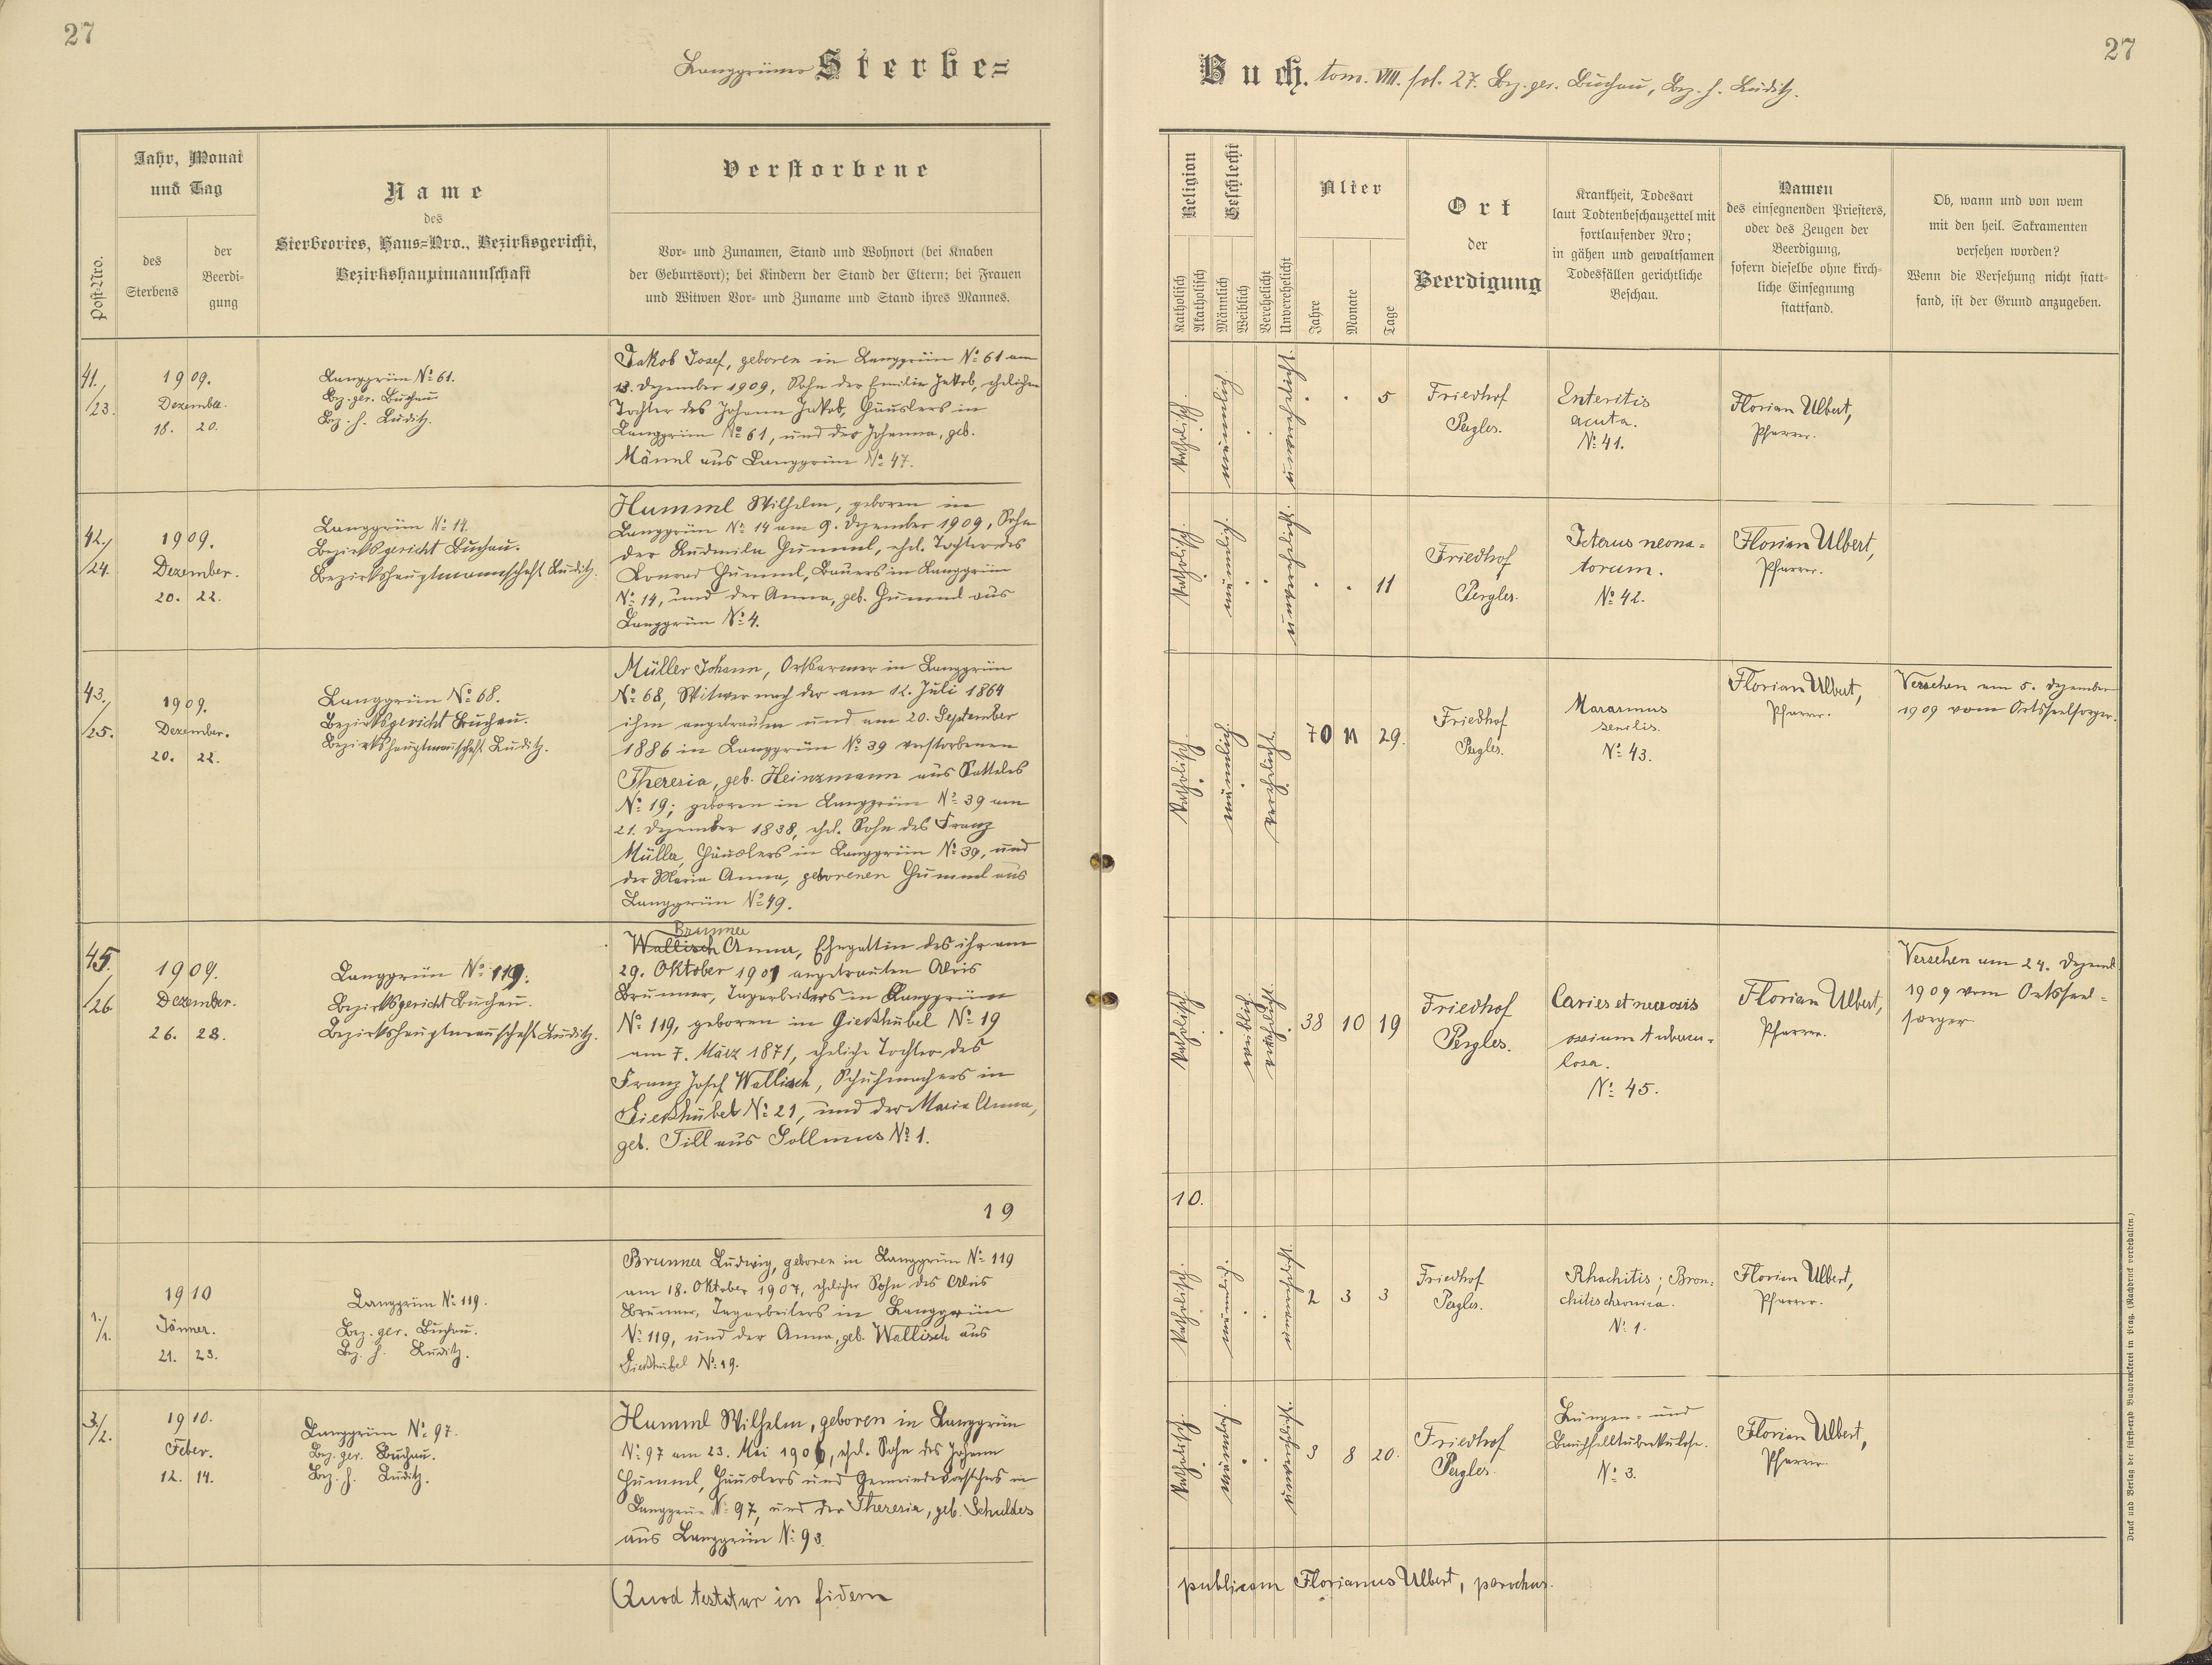 27
Langgrüner Sterbe=
Post-Nro.
Jahr, Monat
und Tag
des
Sterbens
der
Beerdi-
gung
Name
des
Sterbeortes, Haus=Nro., Bezirksgericht,
Bezirkshauptmannschaft
Verstorbene
Vor- und Zunamen, Stand und Wohnort (bei Knaben
der Geburtsort); bei Kindern der Stand der Eltern; bei Frauen
und Witwen Vor- und Zuname und Stand ihres Mannes.
41.
/23.
1909.
Dezember.
18. 20.
Langgrün № 61.
Bez. ger. Buchau
Bez. h. Luditz.
Jakob Josef, geboren in Langgrün № 61 am
13. Dezember 1909, Sohn der Emilie Jakob, ehelichen
Tochter des Johann Jakob, Häuslers in
Langgrün № 61, und der Johanna, geb.
Männl aus Langgrün № 47.
42./
/24.
1909.
Dezember.
20. 22.
Langgrün № 14.
Bezirksgericht Buchau.
Bezirkshauptmannschaft Luditz.
Humml Wilhelm, geboren in
Langgrün № 14 am 9. Dezember 1909, Sohn
der Ludmila Humml, ehel. Tochter des
Konrad Humml, Bauers in Langgrün
№ 14, und der Anna, geb. Humml aus
Langgrün № 4.
43./
/25.
1909.
Dezember.
20. 22.
Langgrün № 68.
Bezirksgericht Buchau.
Bezirkshauptmanschaft Luditz.
Müller Johann, Ortsarmer in Langgrün
№ 68, Witwer nach der am 12. Juli 1864
ihm angetrauten und am 20. September
1886 in Langgrün № 39 verstorbenen
Theresia, geb. Heinzmann aus Satteles
№ 19; geboren in Langgrün № 39 am
21. Dezember 1838, ehel. Sohn des Franz
Müller, Häuslers in Langgrün № 39, und
der Maria Anna, geborenen Humml aus
Langgrün № 49.
45.
/26.
1909.
Dezember.
26. 28.
Langgrün № 119.
Bezirksgericht Buchau.
Bezirkshauptmanschaft Luditz.
Brunner
Wallisch Anna, Ehegattin des ihr am
29. Oktober 1901 angetrauten Alois
Brunner, Tagarbeiters in Langgrün
№ 119, geboren in Gießhübel № 19
am 7. März 1871, eheliche Tochter des
Franz Josef Wallisch, Schuhmachers in
Gießhübel № 21, und der Maria Anna,
geb. Till aus Sollmus № 1.
19
1./
/1.
1910
Jänner.
21. 23.
Langgrün № 119.
Bez. ger. Buchau.
Bez. h. Luditz.
Brunner Ludwig, geboren in Langgrün № 119
am 18. Oktober 1907, ehelicher Sohn des Alois
Brunner, Tagarbeiters in Langgrün
№ 119, und der Anna, geb. Wallisch aus
Gießhübel № 19.
3./
/2.
1910.
Feber.
12. 14.
Langgrün № 97.
Bez. ger. Buchau.
Bez. h. Luditz.
Humml Wilhelm, geboren in Langgrün
№ 97 am 23. Mai 1906, ehel. Sohn des Johann
Humml, Häuslers und Gemeindevorstehers in
Langgrün № 97, und der Theresia, geb. Schuldes
aus Langgrün № 93.
Quod testatur in fidem
27
Buch. tom. VIII. fol. 27. Bez. ger. Buchau, Bez. h. Luditz.
Religion
Katholisch
Akatholisch
Geschlecht
Männlich
Weiblich
Verehelicht
Unverehelicht
Alter
Jahre
Monate
Tage
Ort
der
Beerdigung
Krankheit, Todesart
laut Todtenbeschauzettel mit
fortlaufender Nro;
in gähen und gewaltsamen
Todesfällen gerichtliche
Beschau.
Namen
des einsegnenden Priesters,
oder des Zeugen der
Beerdigung,
sofern dieselbe ohne kirch-
liche Einsegnung
stattfand.
Ob, wann und von wem
mit den heil. Sakramenten
versehen worden?
Wenn die Versehung nicht statt-
fand, ist der Grund anzugeben.
katholisch.
männlich.
unverehelicht.
5
Friedhof
Pergles.
Enteritis
acuta.
№ 41.
Florian Ulbert,
Pfarrer.
katholisch.
männlich.
unverehelicht.
11
Friedhof
Pergles.
Icterus neona=
torum.
№ 42.
Florian Ulbert,
Pfarrer.
katholisch.
männlich.
verehelicht.
70 11 29.
Friedhof
Pergles.
Mararmus
senilis.
№ 43.
Florian Ulbert,
Pfarrer.
Versehen am 5. Dezember
1909 vom Ortsseelsorger.
katholisch.
weiblich.
verehelicht.
38 10 19
Friedhof
Pergles.
Caries et necrosis
ossium tubercu=
losa.
№ 45.
Florian Ulbert,
Pfarrer.
Versehen am 24. Dezemb.
1909 vom Ortsseel=
sorger
10.
katholisch.
männlich.
unverehelicht.
2 3 3
Friedhof
Pergles.
Rhachitis; Bron=
chitis chronica.
№ 1.
Florian Ulbert,
Pfarrer.
katholisch.
männlich.
unverehelicht.
3 8 20.
Friedhof
Pergles.
Lungen= und
Bauchfelltuberkulose.
№ 3.
Florian Ulbert,
Pfarrer.
publicam Florianus Ulbert, parochus.
Druck und Verlag der fürsterzb. Buchdruckerei in Prag. (Nachdruck vorbehalten.)